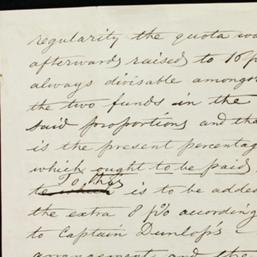 regularity the quota was
afterwards raised to 16 p
always divisable amongst
the two funds in the
said proportions and tha
is the present percentag
which ought to be paid
To this
to which is to be added
the extra 8 p% according
to Captain Dunlop's
arrangement and the